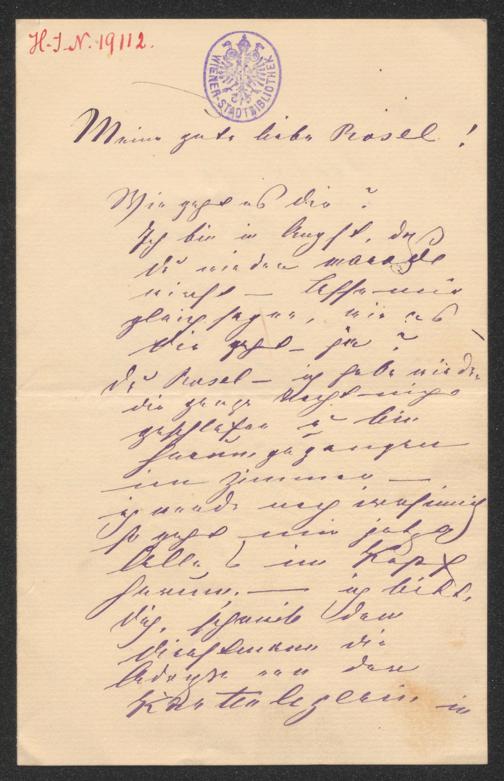 H.I.N. 19112.
WIENER-STADTBIBLIOTHEK
Meine gute liebe Rosel!
Wie geht es dir?
Ich bin in Angst, daß
du wieder marode
wirst — lasse mir
gleich sagen, wie es
dir geht — ja?
du Rosel — ich habe wieder
die ganze Nacht nicht
geschlafen u bin
herumgegangen
im Zimmer —
ich werde noch irrsinnig
so geht mir jetzt
alles im Kopf
herum. — ich bitte
dich, schreib dem
Dienstmann die
Adresse von der
in